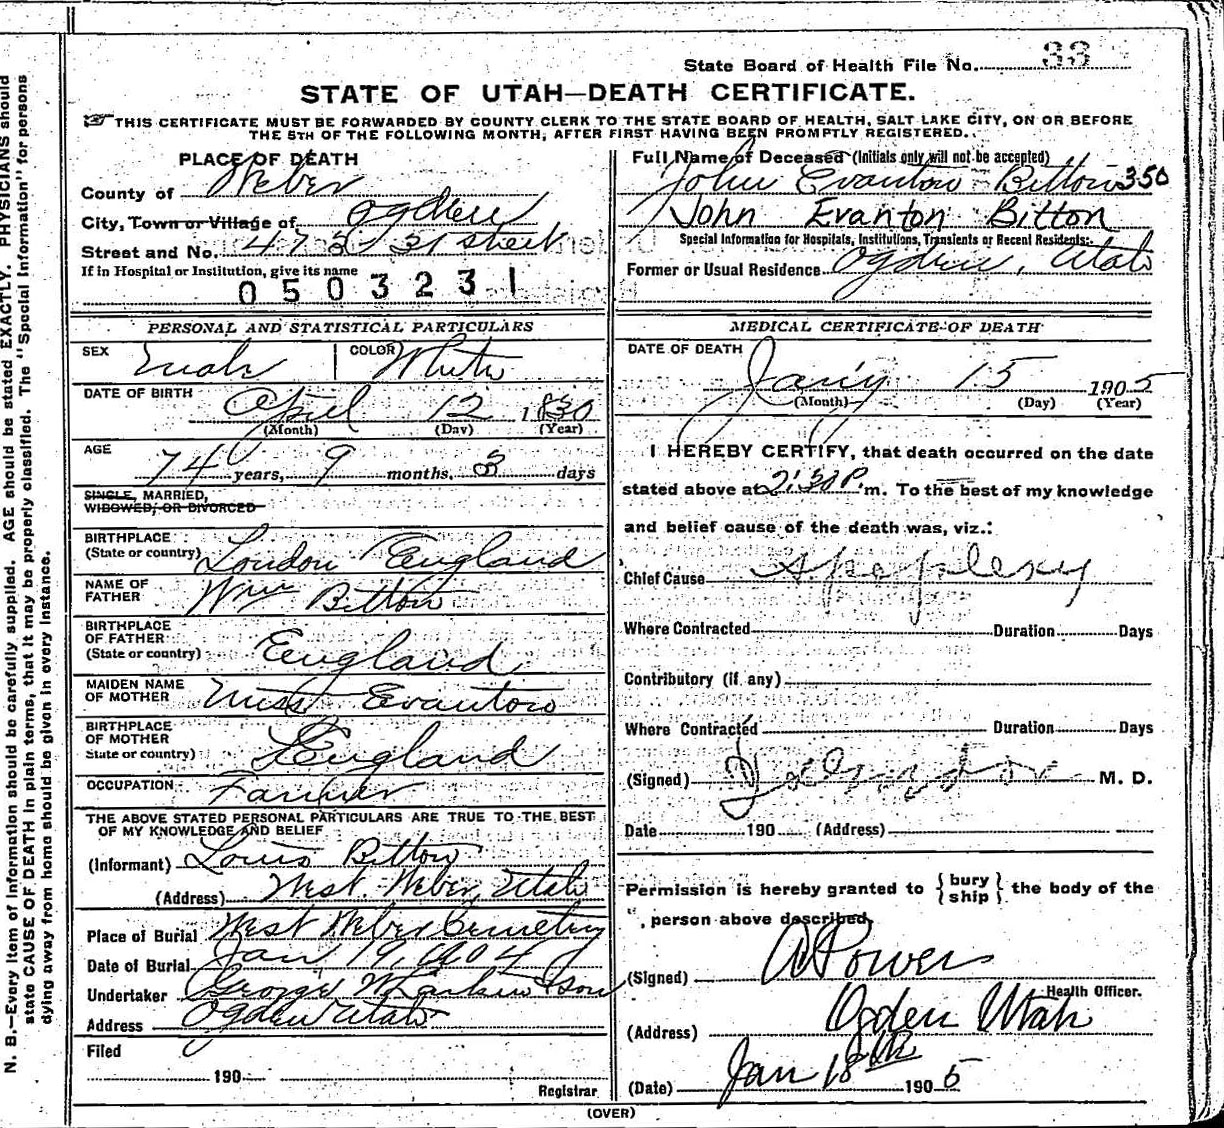 State Board of Health File No. 33
STATE OF UTAH—DEATH CERTIFICATE.
THIS CERTIFICATE MUST BE FORWARDED BY COUNTY CLERK TO THE STATE BOARD OF HEALTH, SALT LAKE CITY, ON OR BEFORE
THE 5TH OF THE FOLLOWING MONTH, AFTER FIRST HAVING BEEN PROMPTLY REGISTERED.
PLACE OF DEATH
County of Weber
City, Town or Village of Ogden
Street and No. 472 31 street
If in Hospital or Institution, give its name
0503231
PERSONAL AND STATISTICAL PARTICULARS
SEX Male COLOR White
DATE OF BIRTH April 12 1830
(Month) (Day) (Year)
AGE 74 years, 9 months, 3 days
SINGLE, MARRIED,
WIDOWED, OR DIVORCED
BIRTHPLACE
(State or country) London England
NAME OF
FATHER Wm Bitton
BIRTHPLACE
OF FATHER
(State or country) England
MAIDEN NAME
OF MOTHER Miss Evanton
BIRTHPLACE
OF MOTHER
State or country) England
OCCUPATION Farmer
THE ABOVE STATED PERSONAL PARTICULARS ARE TRUE TO THE BEST
OF MY KNOWLEDGE AND BELIEF
(Informant) Louis Bitton
(Address) West Weber, Utah
Place of Burial West Weber Cemetery
Date of Burial Jan 19, 1904
Undertaker George W Larkin & Son
Address Ogden Utah
Filed
190
Registrar
Full Name of Deceased (Initials only will not be accepted)
John Evanton Bitton 350
John Evanton Bitton
Special Information for Hospitals, Institutions, Transients or Recent Residents:
Former or Usual Residence Ogden, Utah
MEDICAL CERTIFICATE OF DEATH
DATE OF DEATH
Jany 15 1905
(Month) (Day) (Year)
I HEREBY CERTIFY, that death occurred on the date
stated above at 2:30 P. m. To the best of my knowledge
and belief cause of the death was, viz.:
Chief Cause Apoplexy
Where Contracted Duration Days
Contributory (if any)
Where Contracted Duration Days
(Signed) M. D.
Date 190 (Address)
Permission is hereby granted to { bury ship } the body of the
person above described,
(Signed) A Powers
Health Officer.
(Address) Ogden Utah
(Date) Jan 18th 1905
(OVER)
N. B.—Every item of information should be carefully supplied. AGE should be stated EXACTLY. PHYSICIANS should
state CAUSE OF DEATH in plain terms, that it may be properly classified. The "Special Information" for persons
dying away from home should be given in every instance.